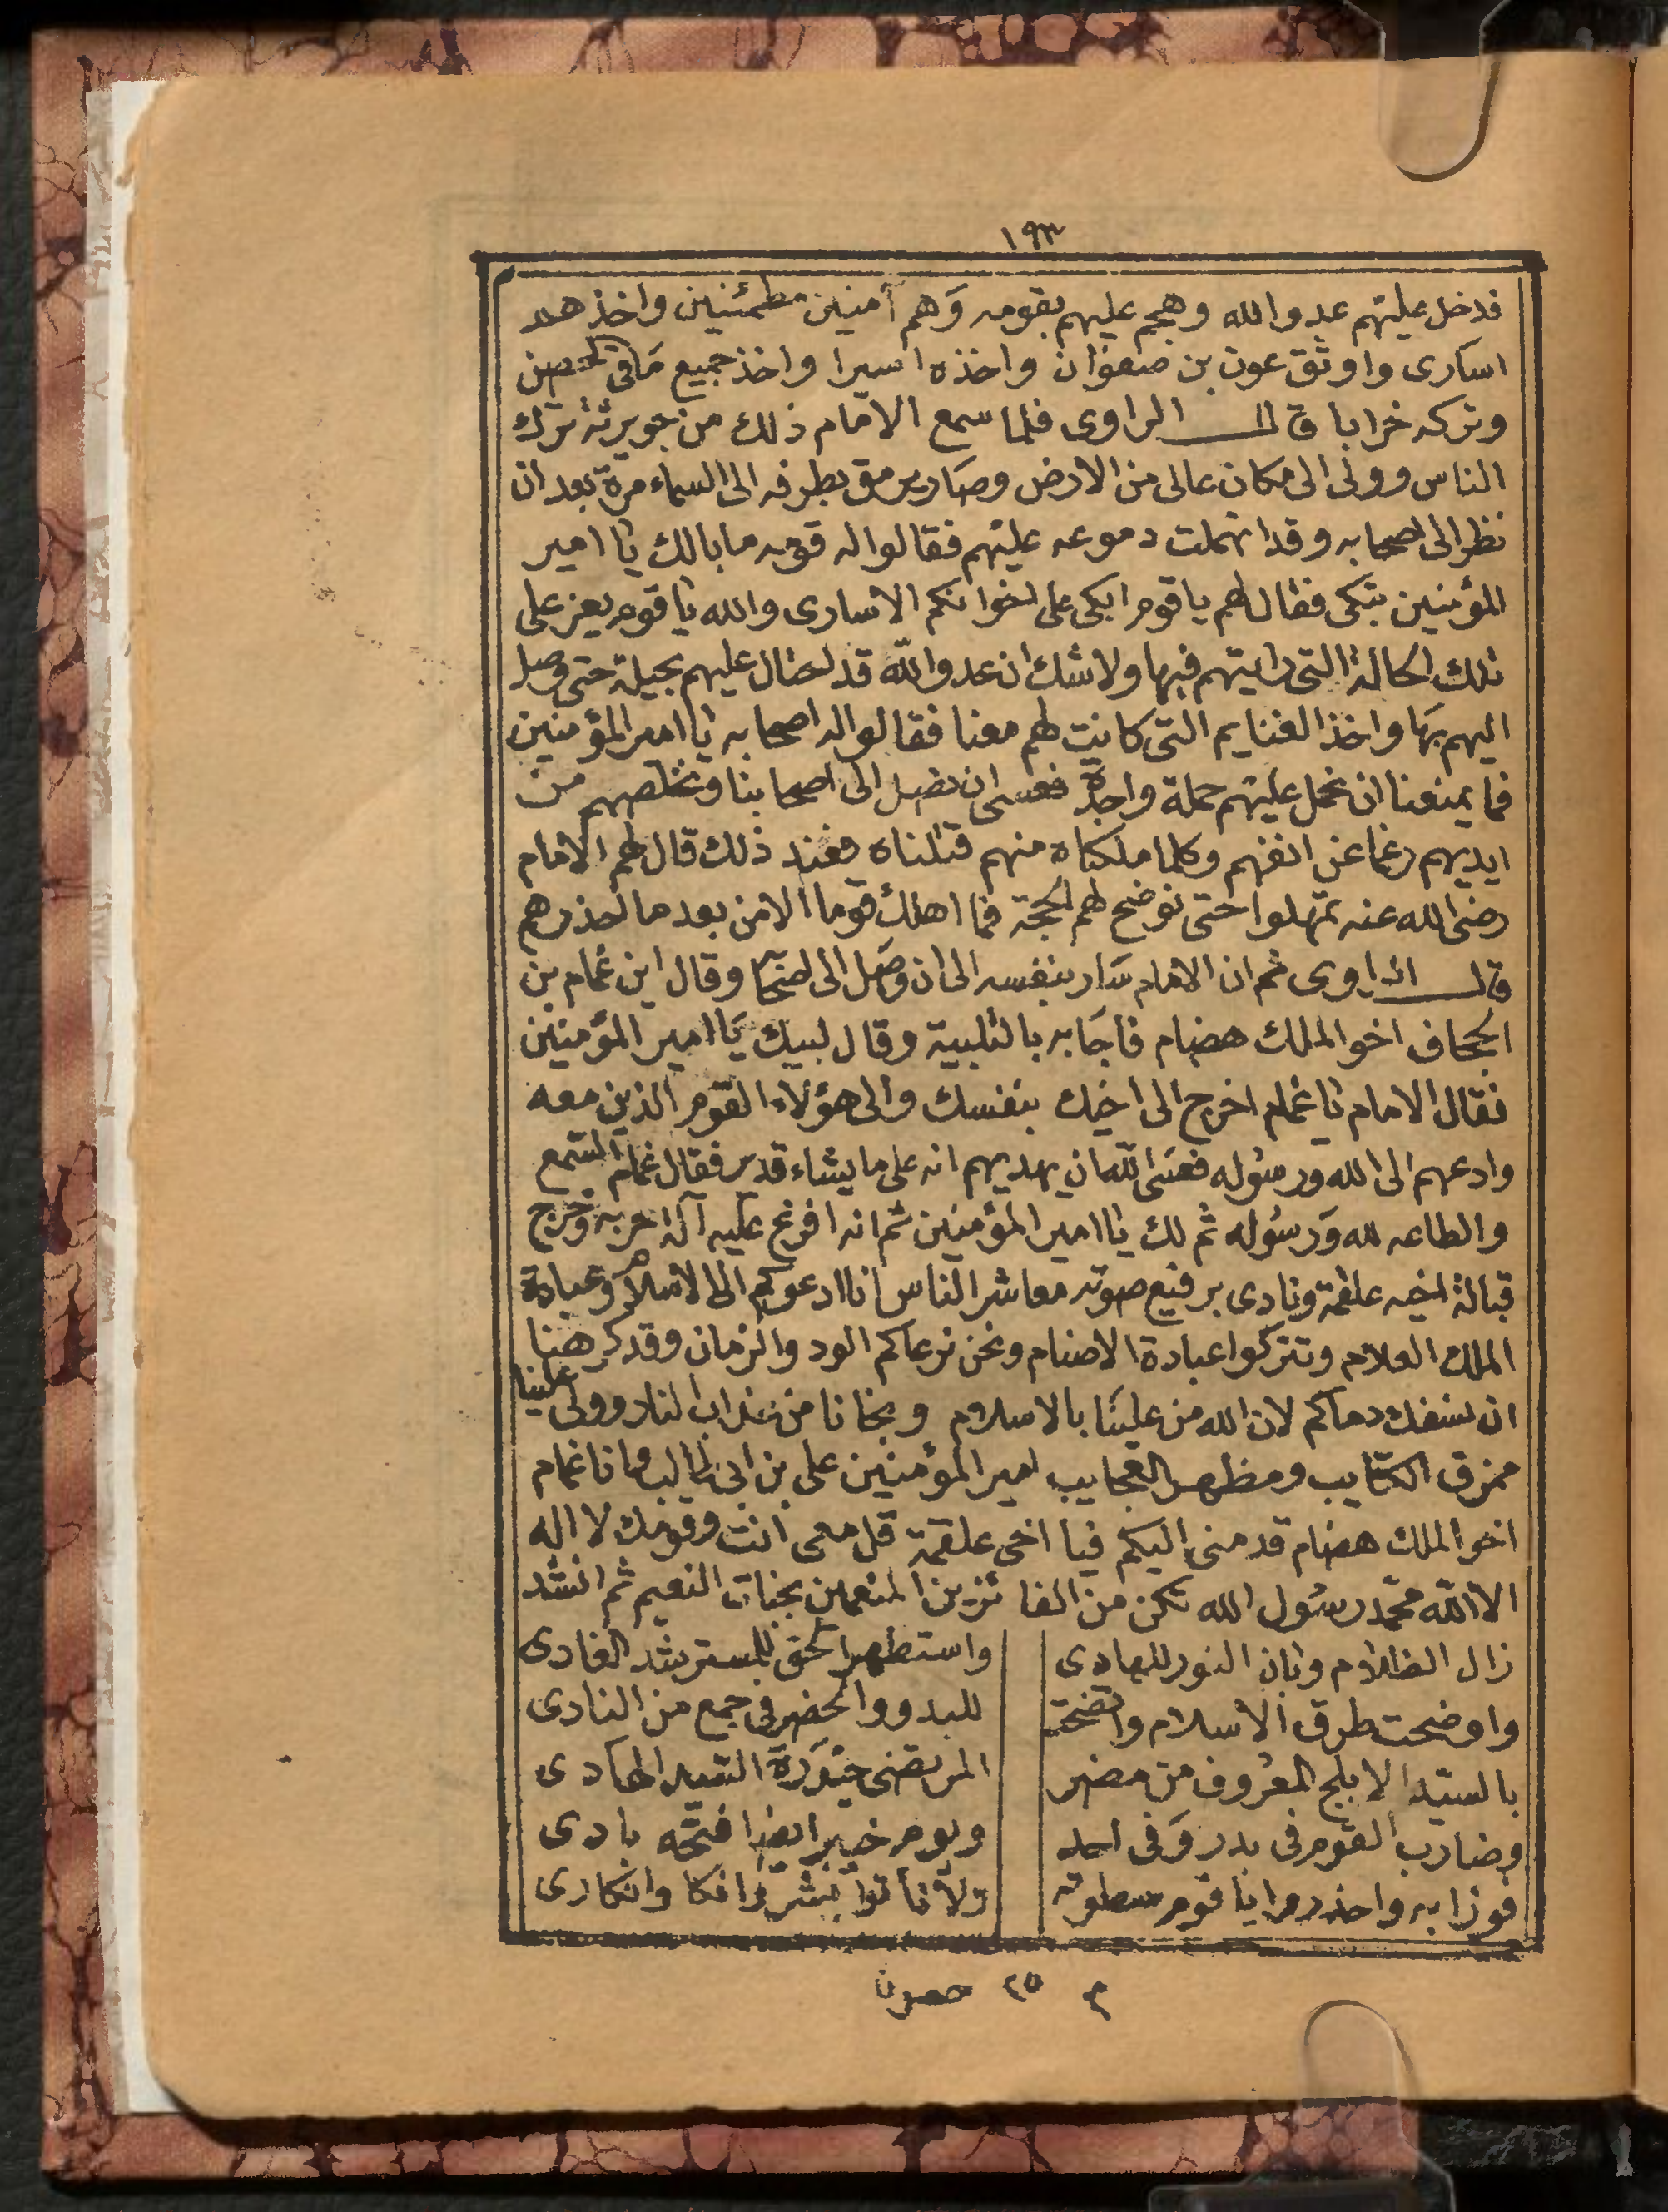 ١٩٣
فدخل عليهم عدو الله وهجم عليهم بقومه وَهم آمنين مطمئنين واخذهم
اسارى واوثق عون بن صفوان واخذه اسيرا واخذ جميع مَا فى الحصن
وتركه خرابا قال الراوى فلما سمع الامام ذلك من جويرثة ترك
الناس وولى الى مكان عالى من الارض وصَار يرمق بطرفه الى السماء مرة بعد ان
نظر الى اصحابه وقد انهملت دموعه عليهم فقالوا له قومه ما بالك يا امير
المؤمنين تبكى فقال لهم يا قوم ابكى على اخوانكم الاسارى والله يا قوم يعز على
تلك الحالة التى رايتهم فيها ولا شك ان عدو الله قد احتال عليهم بحيلة حتى وصل
اليهم بهَا واخذ الغنايم التى كانت لهم معنا فقالوا له اصحابه يا امير المؤمنين
فما يمنعنا ان نحمل عليهم حملة واحدة فعسى ان نصل الى اصحابنا ونخلصهم من
ايديهم رغما عن انفهم وكلما ملكناه منهم قتلناه فعند ذلك قال لهم الامام
رضى الله عنه تمهلوا حتى نوضح لهم الحجة فما اهلك قوما الا من بعد ما احذرهم
قال الراوى ثم ان الامام سَار بنفسه الى ان وصَل الى اصحَابه وقال اين غمام بن
الجحاف اخو الملك هضام فاجَابه بالتلبية وقال لبيك يَا امير المؤمنين
فقال الامام يا غمام اخرج الى اخيك بنفسك والى هؤلاء القوم الذين معه
وادعهم الى الله ورسُوله فعسَى الله ان يهديهم انه على ما يشاء قدير فقال غمام السمع
والطاعه لله وَرسُوله ثم لك يا امير المؤمنين ثم انه افرغ عليه آلة حربه وخرج
قبالة اخيه علقمة ونادى برفيع صوته معاشر الناس انا ادعوكم الى الاسلام وعبادة
الملك العلام وتتركوا عبادة الاصنام ونحن نرعاكم الود والزمان وقد كرهنا
ان نسفك دماكم لان الله من علينَا بالاسلام ونجانا من عذاب النار وولى علينا
ممزق الكتايب ومظهر العجايب امير المؤمنين على بن ابى طالب وانا غمام
اخو الملك هضام قدمنى اليكم فيا اخى علقمة قل معى انت وقومك لا اله
الا الله محمد رسُول الله تكن من الفائزين المنعمين بجنات النعيم ثم انشد
زال الظلام وبان النور للهادى واستظهر الحق للمسترشد الغادى
واوضحت طرق الاسلام واتضحت للبدو والحضر فى جمع من النادى
بالسيد الابلج المعروف من مضر المرتضى حَيْدَرَة السَيد الهَادى
وضارب القوم فى بدر وَفى احد ويوم خيبر ايضا فتحه بادى
فوزا به واحذروا يا قوم سطوته ولا تأتوا بشر وافكا وانكارى
م ٢٥ حصون